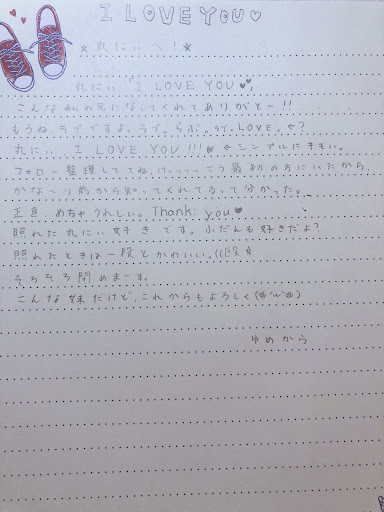 I LOVE YOU♡
☆丸にぃへ！☆
丸にぃ I LOVE YOU♥
こんな私の兄になってくれてありがとー!!
もうね、ラブですよ。ラブ。らぶ。ラヴ。LOVE。←?
丸にぃ I LOVE YOU!!!♥ ←シンプルにきもい。
フォロー整理しててね、けっっっこう最初の方にいたから
かな〜り前から知ってくれてるって分かった。
正直、めちゃうれしい。Thank you♥
照れた丸にぃ好きです。ふだんも好きだよ?
照れたときは一段とかわいい。((殴
そろそろ閉めまーす。
こんな妹だけど、これからもよろしく
ゆめから